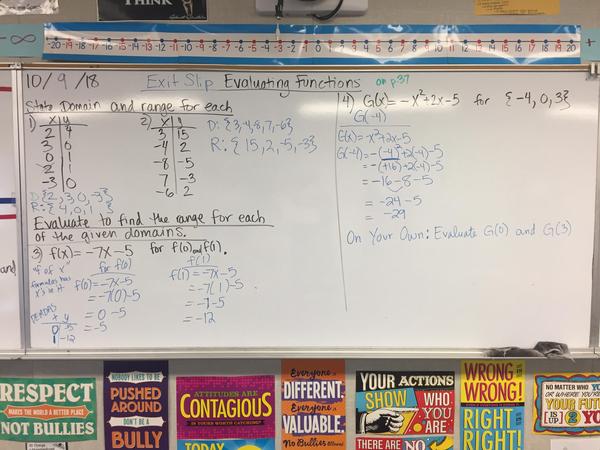 -∞ -20 -19 -18 -17 -16 -15 -14 -13 -12 -11 -10 -9 -8 -7 -6 -5 -4 -3 -2 -1 0 1 2 3 4 5 6 7 8 9 10 11 12 13 14 15 16 17 18 19 20 +
10/9/18 Exit Slip Evaluating Functions on p37
State Domain and range for each
1) x y
2 4
3 0
0 1
2 1
-3 0
D: {2, 3, 0, -3}
R: {4, 0, 1}
2) x y
3 15
-4 2
-8 -5
7 -3
-6 2
D: {3, -4, -8, 7, -6}
R: {15, 2, -5, -3}
Evaluate to find the range for each
of the given domains.
3) f(x) = -7x - 5 for f(0) and f(1).
"f of x"
formulas has
x's in it
PEMDAS
x y
0 -5
1 -12
for f(0)
f(0) = -7x - 5
= -7(0) - 5
= 0 - 5
= -5
f(1)
f(1) = -7x - 5
= -7(1) - 5
= -7 - 5
= -12
4) G(x) = -x² + 2x - 5 for {-4, 0, 3}
G(-4)
G(x) = -x² + 2x - 5
G(-4) = -(-4)² + 2(-4) - 5
= -(+16) + 2(-4) - 5
= -16 - 8 - 5
= -24 - 5
= -29
On Your Own: Evaluate G(0) and G(3)
and
RESPECT
MAKES THE WORLD A BETTER PLACE
NOT BULLIES
NOBODY LIKES TO BE
PUSHED
AROUND
DON'T BE A
BULLY
ATTITUDES ARE
CONTAGIOUS
IS YOURS WORTH CATCHING?
TODAY
Everyone is
DIFFERENT.
Everyone is
VALUABLE.
No Bullies Allowed!
YOUR ACTIONS
SHOW WHO
YOU
ARE
THERE ARE NO
WRONG!
WRONG!
RIGHT!
RIGHT!
NO MATTER WHO YOU
OR WHERE YOU'RE
YOUR FUTU
IS UP TO YO